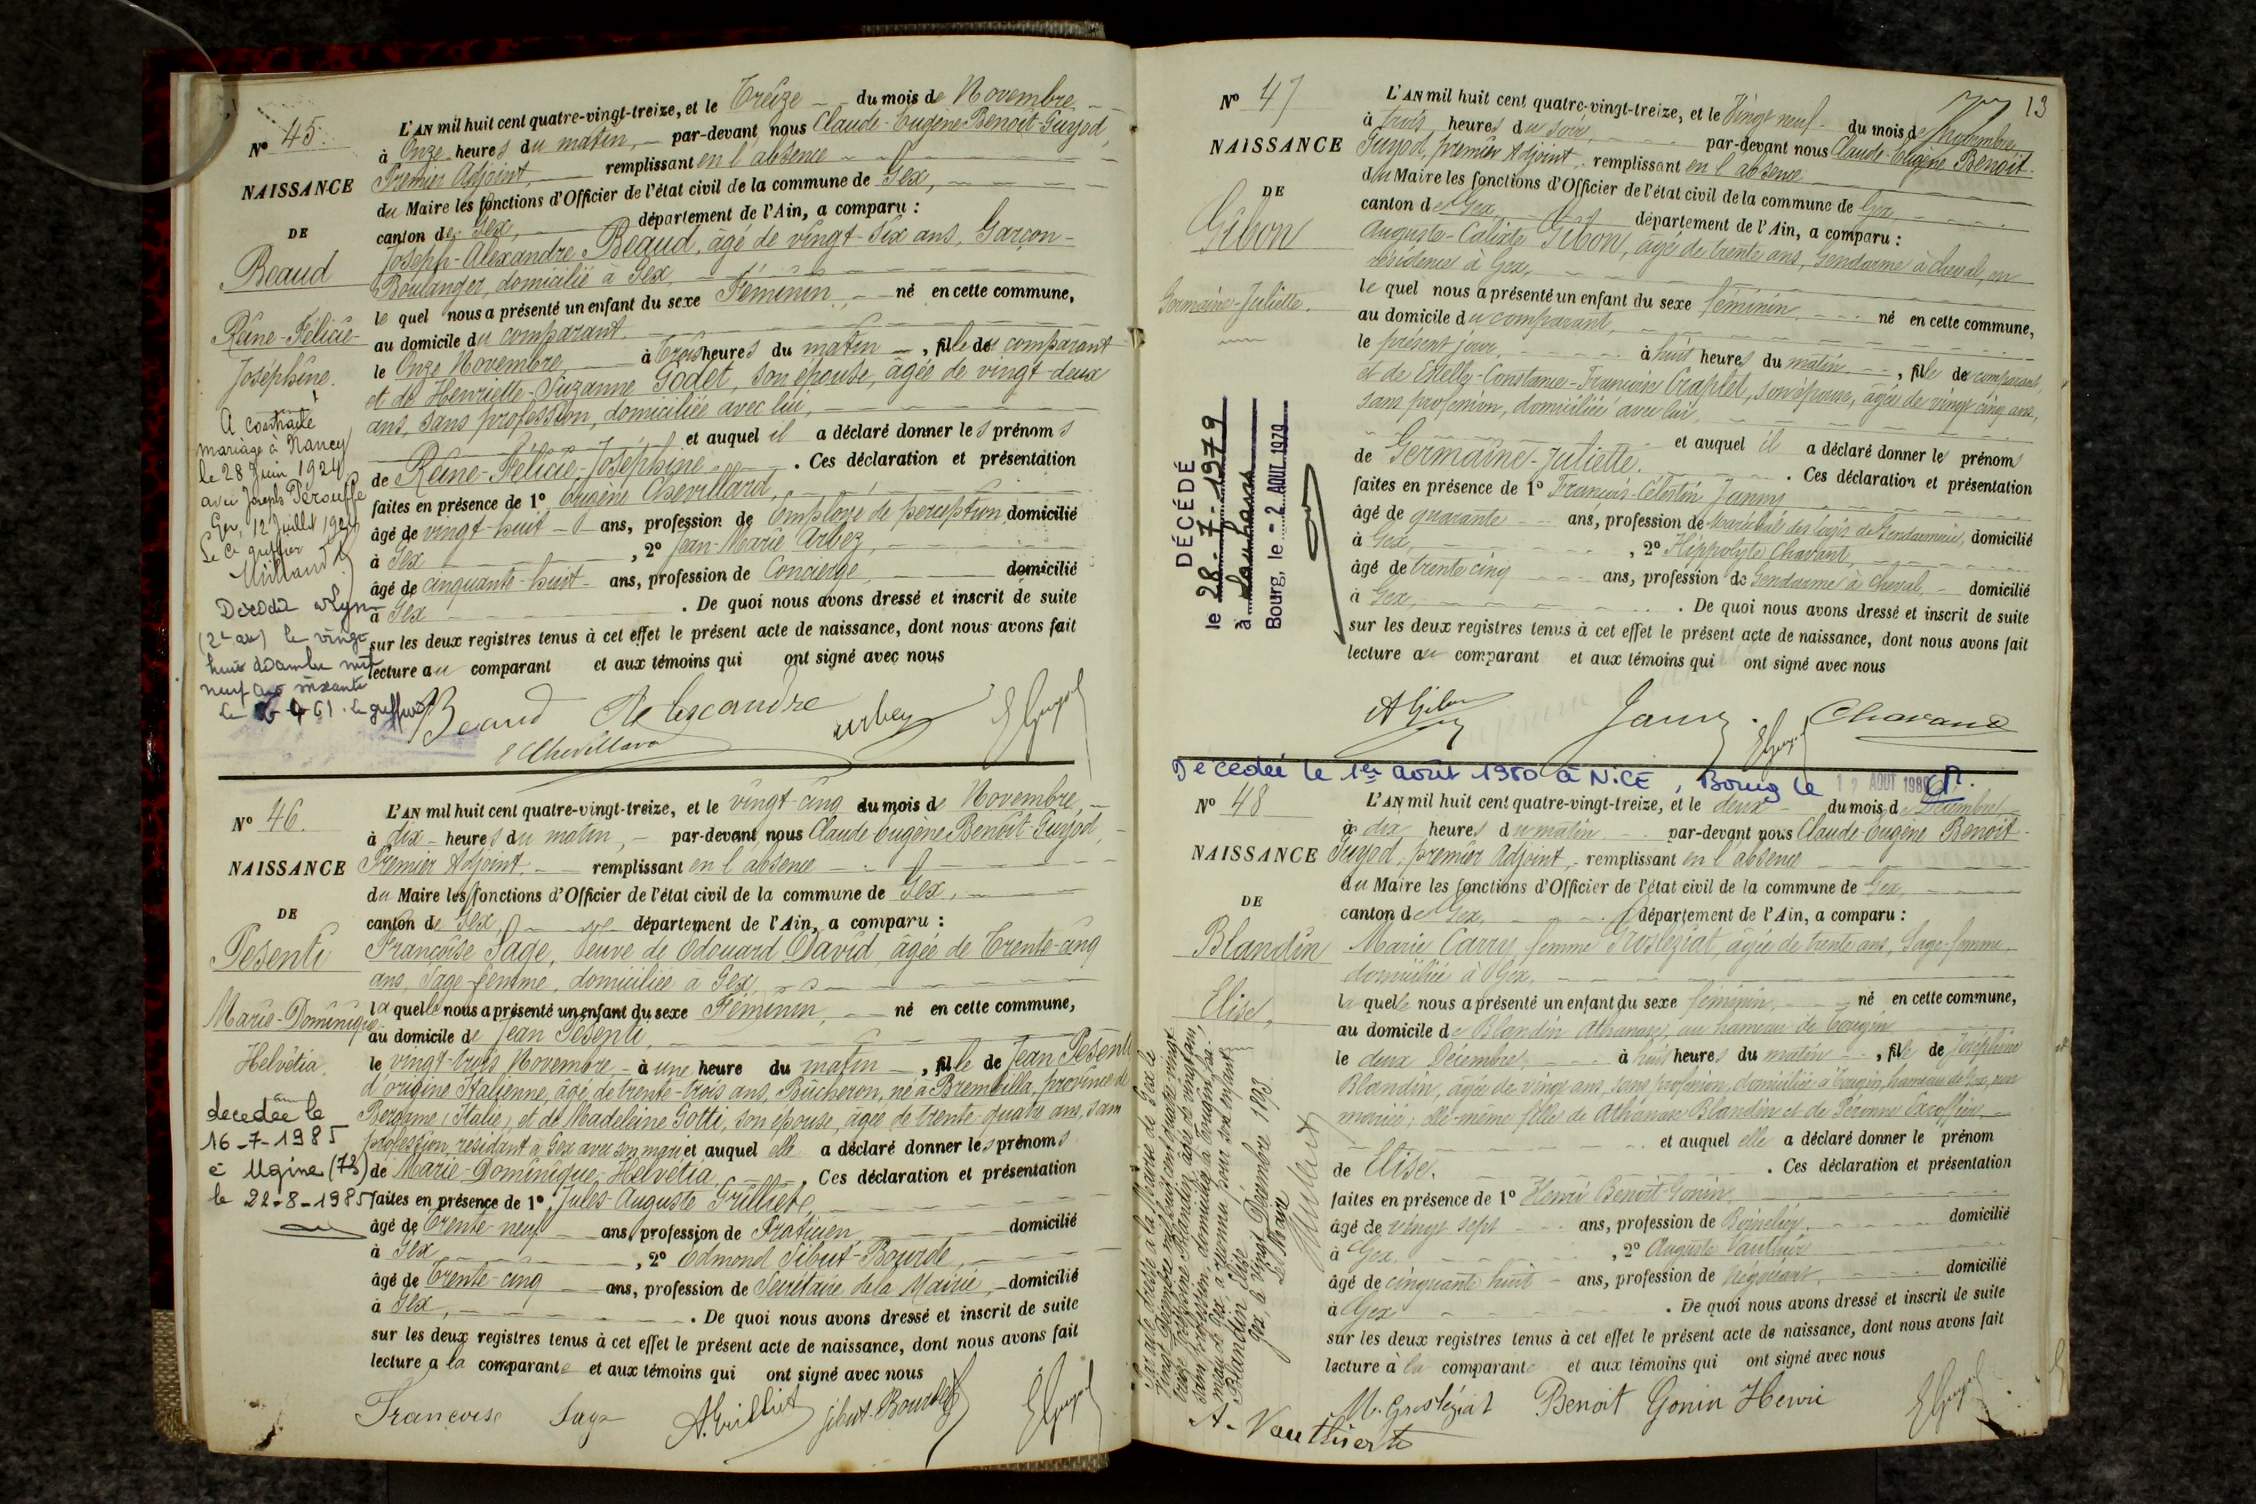 N° 45.
NAISSANCE
DE
Beaud
Reine-Félicie-
Joséphine.
A contracté
mariage à Nancy
le 28 Juin 1924
avec Joseph Pérouffe
Gex, 12 Juillet 1924
Le Cis greffier
Décédée à Lyon
(2e arr) le vingt
huit décembre mil
neuf cent soixante
L'AN mil huit cent quatre-vingt-treize, et le Treize du mois de Novembre
à Onze heures du matin, par-devant nous Claude-Eugène Benoit-Guyod,
Premier Adjoint, remplissant en l'absence
du Maire les fonctions d'Officier de l'état civil de la commune de Gex,
canton de Gex, département de l'Ain, a comparu :
Joseph-Alexandre Beaud, âgé de vingt-six ans, Garçon-
Boulanger, domicilié à Gex,
le quel nous a présenté un enfant du sexe Féminin, né en cette commune,
au domicile du comparant.
le Onze Novembre à trois heures du matin, fille du comparant
et de Henriette-Suzanne Godet, son épouse, âgée de vingt-deux
ans, sans profession, domiciliée avec lui,
et auquel il a déclaré donner les prénoms
de Reine-Félicie-Joséphine. Ces déclaration et présentation
faites en présence de 1° Eugène Chevillard,
âgé de vingt-huit ans, profession de Employé de perception domicilié
à Gex, 2° Jean-Marie Arbez,
âgé de cinquante-huit ans, profession de Concierge, domicilié
à Gex. De quoi nous avons dressé et inscrit de suite
sur les deux registres tenus à cet effet le présent acte de naissance, dont nous avons fait
lecture au comparant et aux témoins qui ont signé avec nous
Beaud Alexandre Arbez EGuyod
E Chevillard
N° 46.
NAISSANCE
DE
Pesenti
Marie-Dominique
Helvétia.
decedée le
16-7-1985
à Ugine (73)
le 22-8-1985
L'AN mil huit cent quatre-vingt-treize, et le vingt-cinq du mois de Novembre,
à dix heures du matin, par-devant nous Claude-Eugène Benoit-Guyod,
Premier Adjoint, remplissant en l'absence
du Maire les fonctions d'Officier de l'état civil de la commune de Gex,
canton de Gex, département de l'Ain, a comparu :
Françoise Sage, Veuve de Edouard David, âgée de Trente-cinq
ans, Sage-femme, domiciliée à Gex,
la quelle nous a présenté un enfant du sexe Féminin, né en cette commune,
au domicile de Jean Pesenti,
le vingt-trois Novembre, à une heure du matin, fille de Jean Pesenti
d'origine Italienne, âgé de trente-trois ans, Bûcheron, né à Brembilla, province de
Bergame (Italie), et de Madeleine Gotti, son épouse, âgée de trente-quatre ans, sans
profession, résidant à Gex avec son mari et auquel elle a déclaré donner les prénoms
de Marie-Dominique-Helvétia. Ces déclaration et présentation
faites en présence de 1° Jules-Auguste Grilliet,
âgé de Trente-neuf ans, profession de Praticien domicilié
à Gex, 2° Edmond Sibut-Bourde,
âgé de Trente-cinq ans, profession de Secrétaire de la Mairie, domicilié
à Gex, . De quoi nous avons dressé et inscrit de suite
sur les deux registres tenus à cet effet le présent acte de naissance, dont nous avons fait
lecture à la comparante et aux témoins qui ont signé avec nous
Françoise Sage A. Grilliet Sibut-Bourde EGuyod
13
N° 47
NAISSANCE
DE
Gibon
Germaine-Juliette.
DÉCÉDÉ
le 28-7-1979
à
Bourg, le 2 AOUT 1979
L'AN mil huit cent quatre-vingt-treize, et le Vingt neuf du mois de Novembre
à trois heures du soir, par-devant nous Claude-Eugène Benoit-
Guyod, premier Adjoint, remplissant en l'absence
du Maire les fonctions d'Officier de l'état civil de la commune de Gex,
canton de Gex, département de l'Ain, a comparu :
Auguste-Calixte Gibon, âgé de trente ans, Gendarme à cheval, en
résidence à Gex,
le quel nous a présenté un enfant du sexe féminin, né en cette commune,
au domicile du comparant,
le présent jour, à huit heures du matin, fille du comparant,
et de Estelle-Constance-Françoise Craplet, son épouse, âgée de vingt cinq ans,
sans profession, domiciliée avec lui,
et auquel il a déclaré donner les prénoms
de Germaine-Juliette. Ces déclaration et présentation
faites en présence de 1° François-Célestin Janny
âgé de quarante ans, profession de Maréchal des logis de Gendarmerie, domicilié
à Gex, 2° Hippolyte Chavant
âgé de trente cinq ans, profession de Gendarme à cheval, domicilié
à Gex, . De quoi nous avons dressé et inscrit de suite
sur les deux registres tenus à cet effet le présent acte de naissance, dont nous avons fait
lecture au comparant et aux témoins qui ont signé avec nous
AGibon Janny. EGuyod Chavand
Décédée le 1er août 1980 à NICE, Bourg le 12 AOUT 1980
N° 48
NAISSANCE
DE
Blandin
Elise,
Par acte dressé à la Mairie de Gex le
vingt Décembre mil huit cent quatre-vingt
treize, Joséphine Blandin, âgée de vingt ans,
sans profession, domiciliée à Tougin, ha-
meau de Gex, a reconnu pour son enfant
Blandin Elise
Gex, le Vingt Décembre 1893.
Le Maire
L'AN mil huit cent quatre-vingt-treize, et le deux du mois de Décembre
à dix heures du matin par-devant nous Claude-Eugène Benoit-
Guyod, premier Adjoint, remplissant en l'absence
du Maire les fonctions d'Officier de l'état civil de la commune de Gex,
canton de Gex, département de l'Ain, a comparu :
Marie Carry femme Grosléziat, âgée de trente ans, Sage-femme
domiciliée à Gex,
la quelle nous a présenté un enfant du sexe féminin, né en cette commune,
au domicile de Blandin Athanase, au hameau de Tougin
le deux Décembre, à huit heures du matin, fille de Joséphine
Blandin, âgée de vingt ans, sans profession, domiciliée à Tougin, hameau de Gex, non
mariée; elle-même fille de Athanase Blandin et de Péronne Excoffier,
et auquel elle a déclaré donner le prénom
de Elise. Ces déclaration et présentation
faites en présence de 1° Henri Benoit-Gonin
âgé de vingt sept ans, profession de domicilié
à Gex, 2° Auguste Vauthier
âgé de cinquante huit ans, profession de Négociant, domicilié
à Gex. De quoi nous avons dressé et inscrit de suite
sur les deux registres tenus à cet effet le présent acte de naissance, dont nous avons fait
lecture à la comparante et aux témoins qui ont signé avec nous
M. Grosléziat Benoit Gonin Henri EGuyod
A. Vauthier